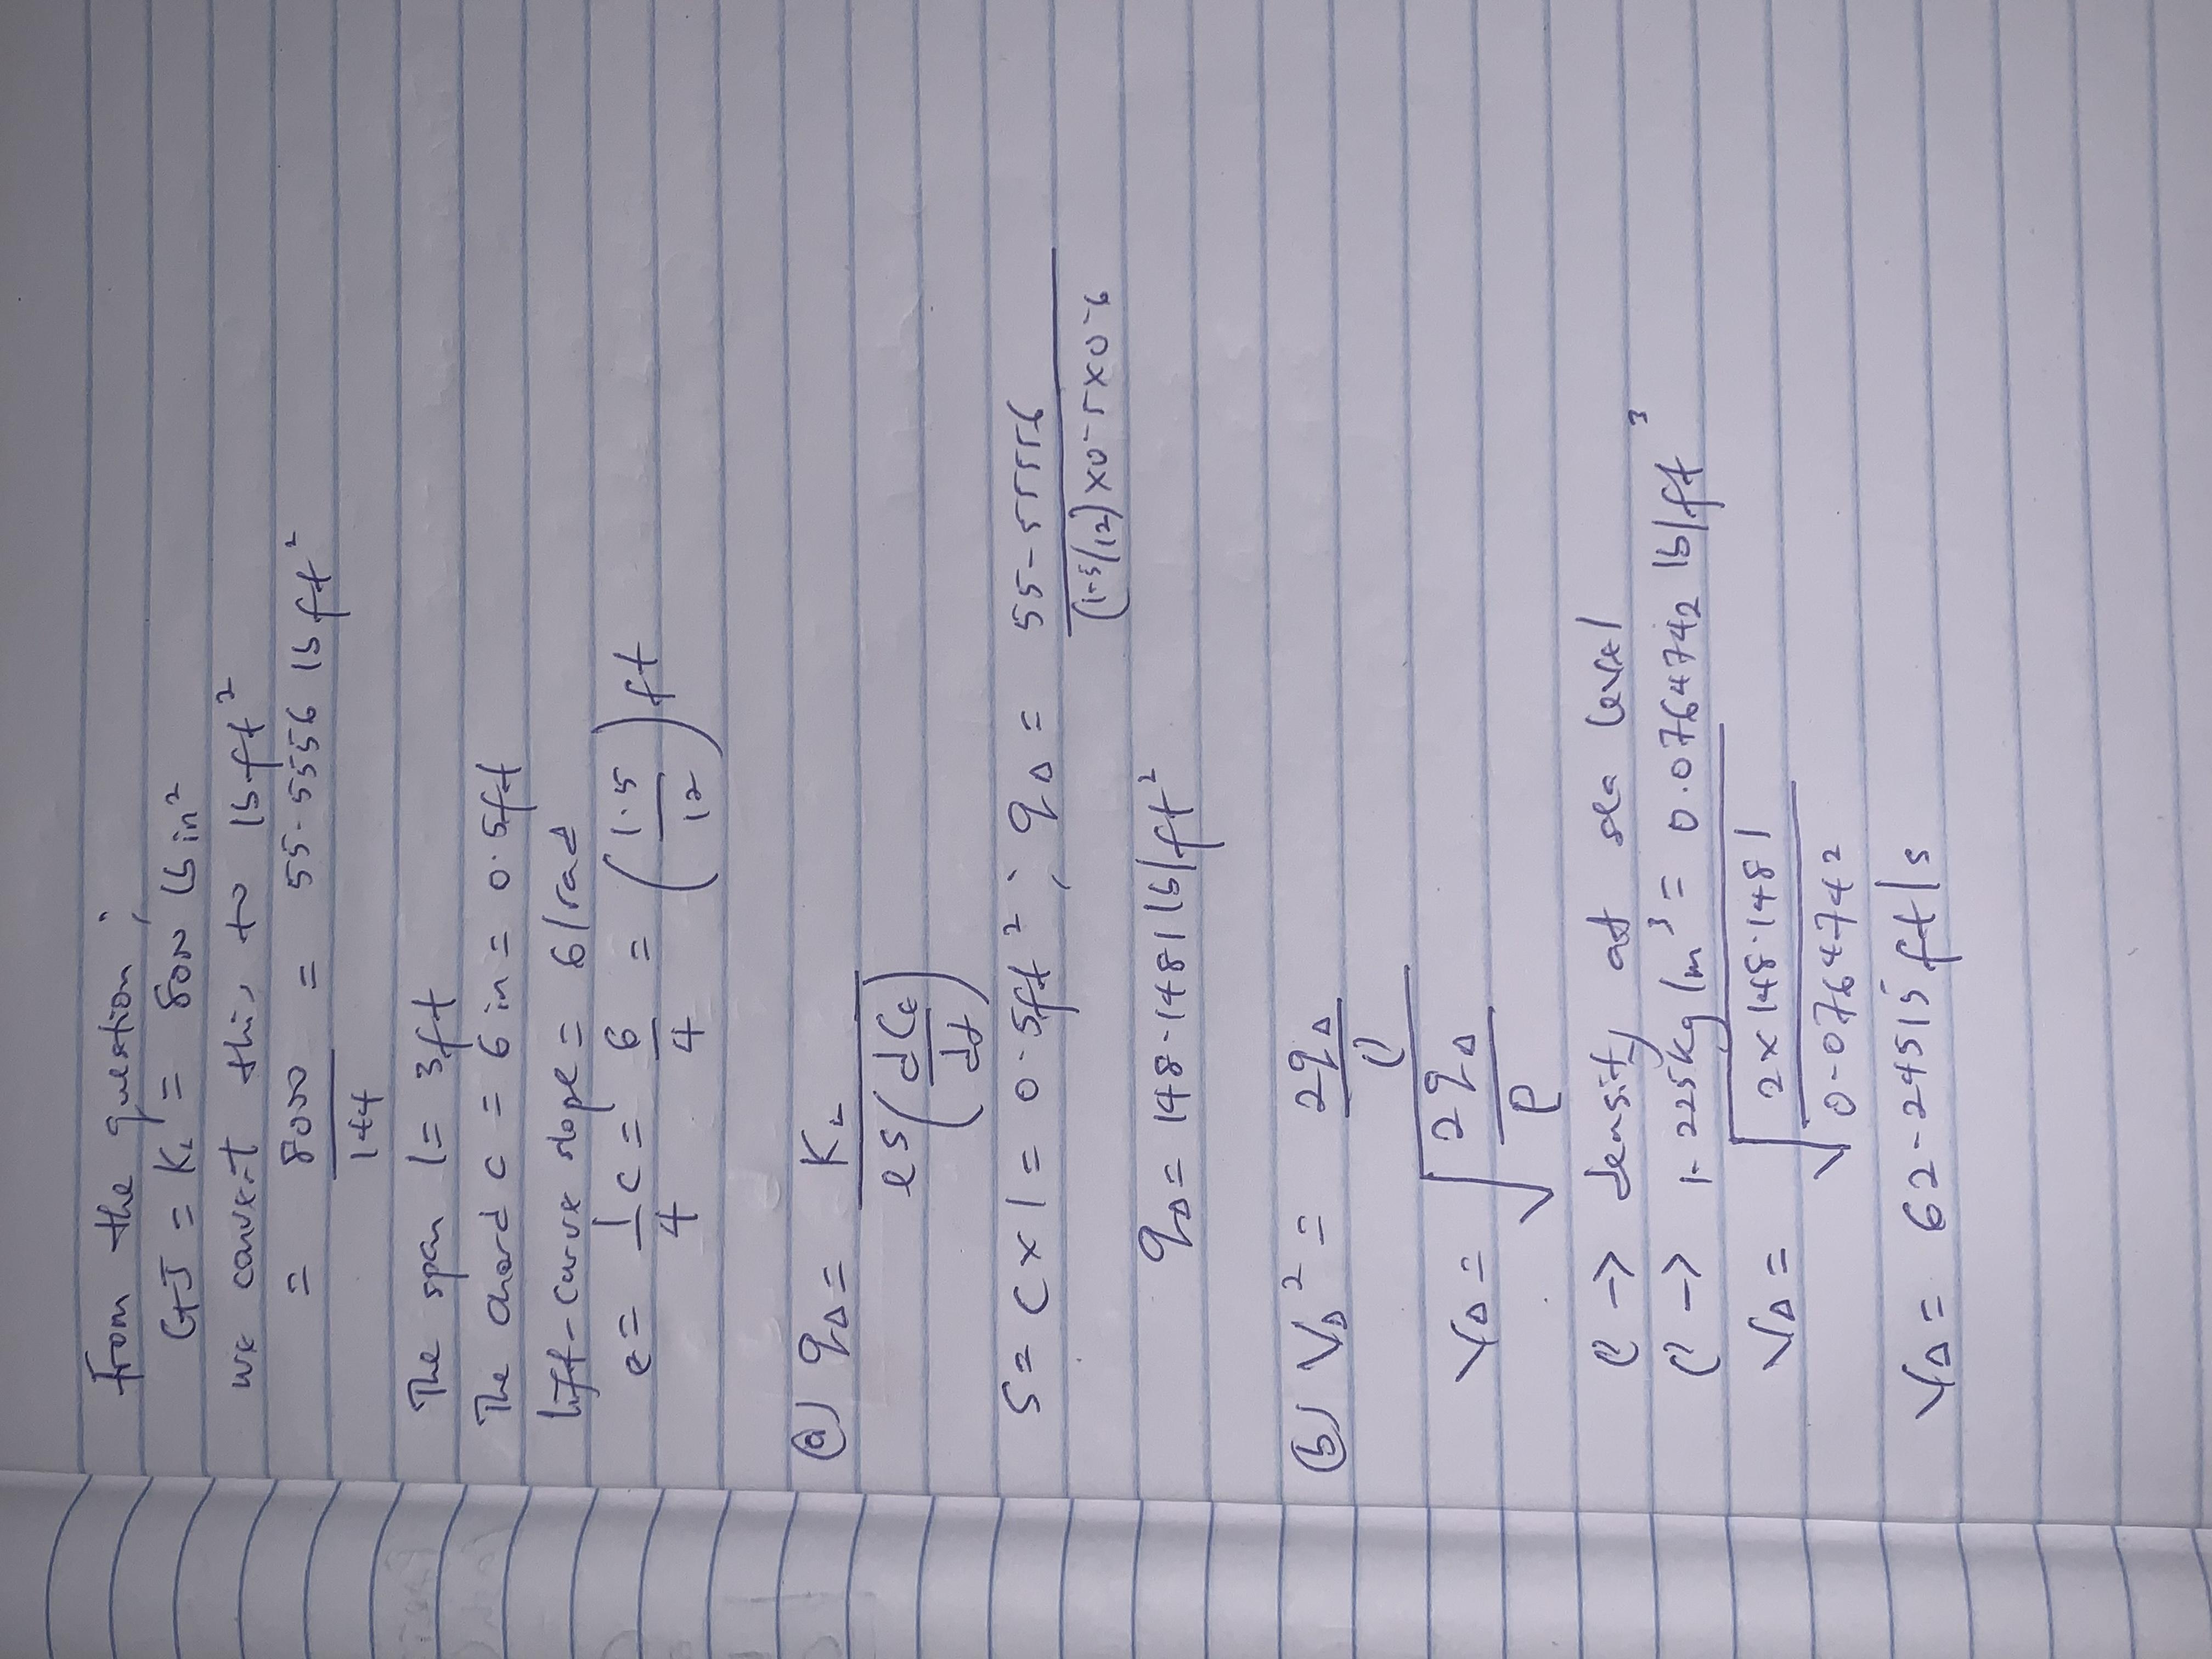 From the question;
GJ = K_L = 8000 lb in²
we convert this, to lb ft²
= 8000/144 = 55.5556 lb ft²
The span l = 3ft
The chord c = 6 in = 0.5ft
lift-curve slope = 6/rad
e = 1/4 c = 6/4 = (1.5/12) ft
(a) q_D = K_L / es(dC_L/dα)
S = C x l = 0.5ft² ; q_D = 55.55556 / (1.5/12) x 0.5 x 0.6
q_D = 148.1481 lb/ft²
(b) V_D² = 2q_D/ρ
V_D = √(2q_D/ρ)
ρ → density at sea level
ρ → 1.225kg/m³ = 0.0764742 lb/ft³
V_D = √(2 x 148.1481 / 0.0764742)
V_D = 62.24515 ft/s